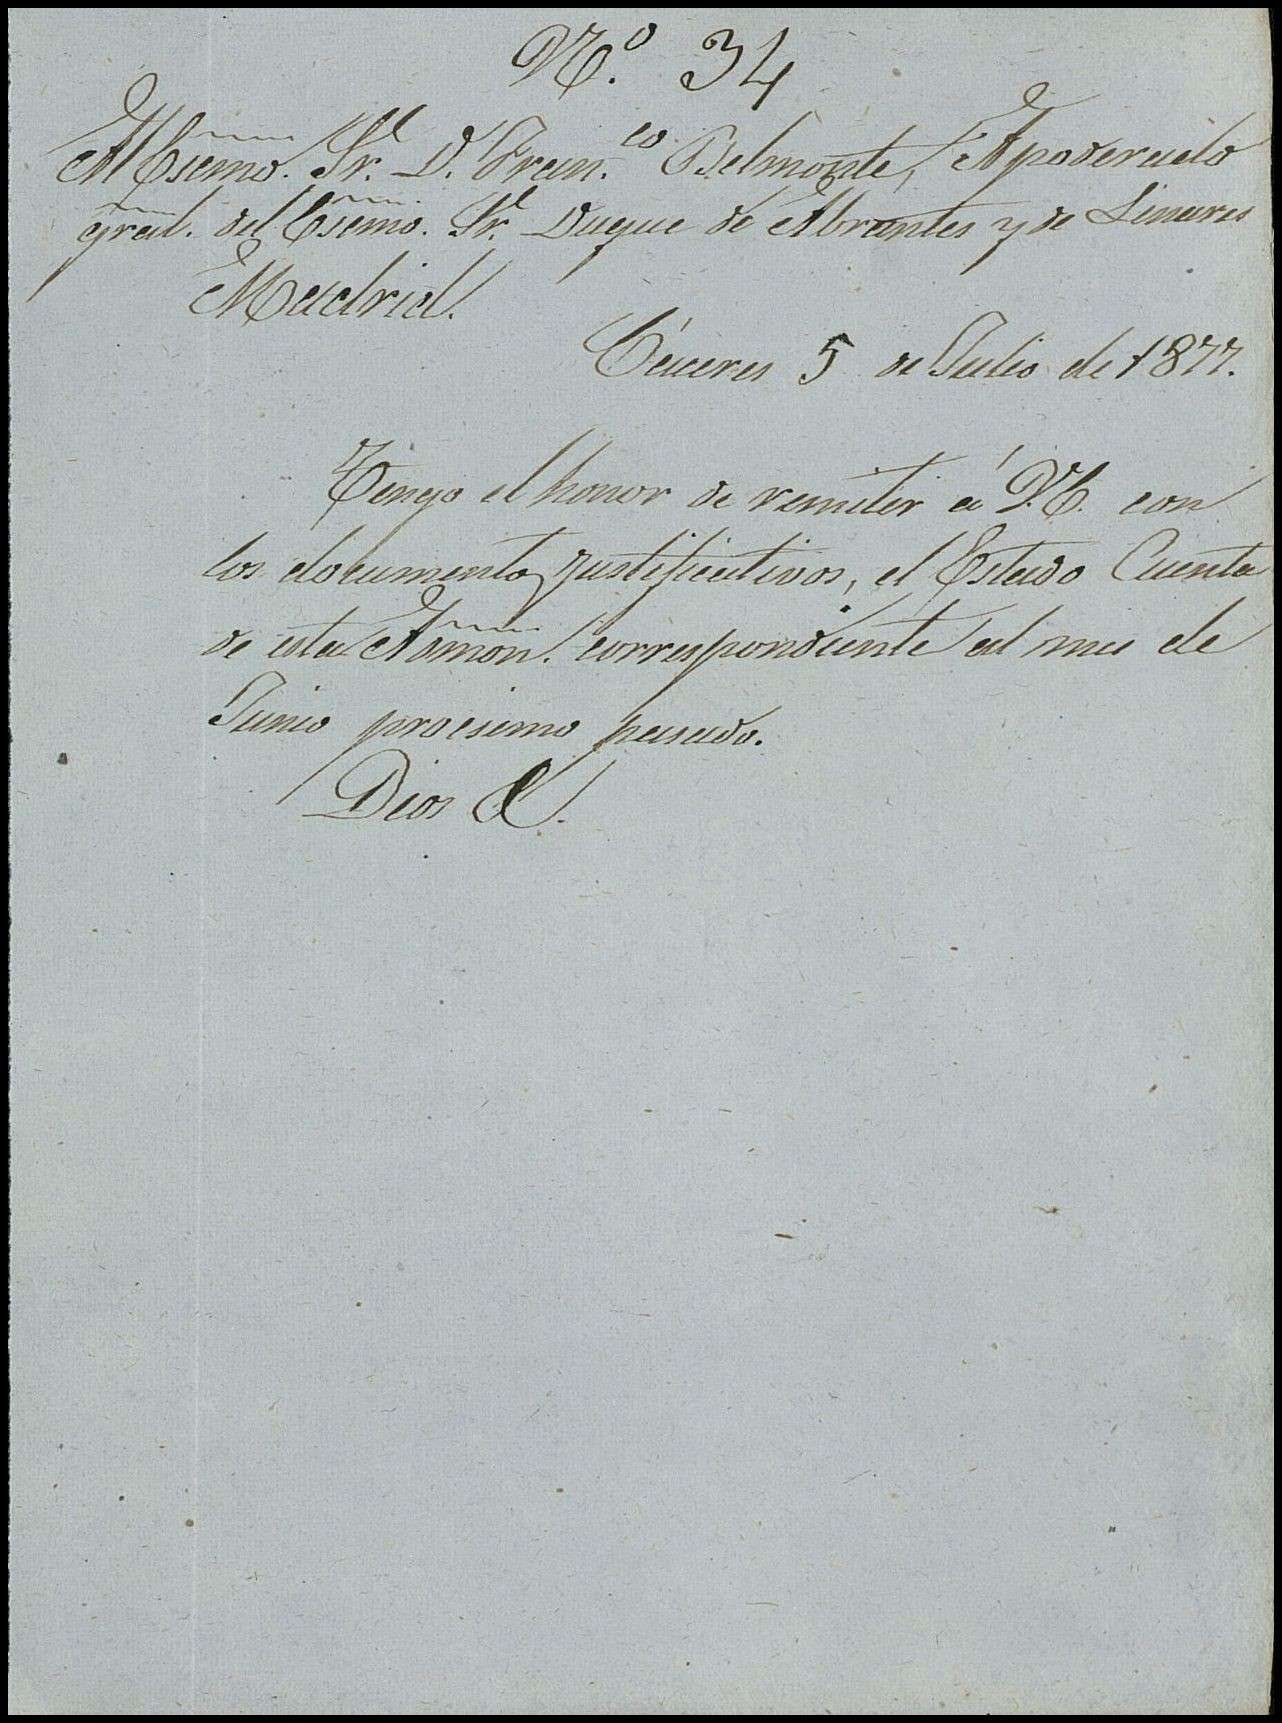 N.º 34
Al Esemo. Sr. D. Fran.co Belmonte, Apoderado
gral. del Esemo. Sr. Duque de Abrantes y de Linares
Madrid.
Cáceres 5 de Julio de 1877.
Tengo el honor de remitir á V.E. con
los documentos justificativos, el Estado Cuenta
de esta Admon. correspondiente al mes de
Junio procsimo pasado.
Dios &.